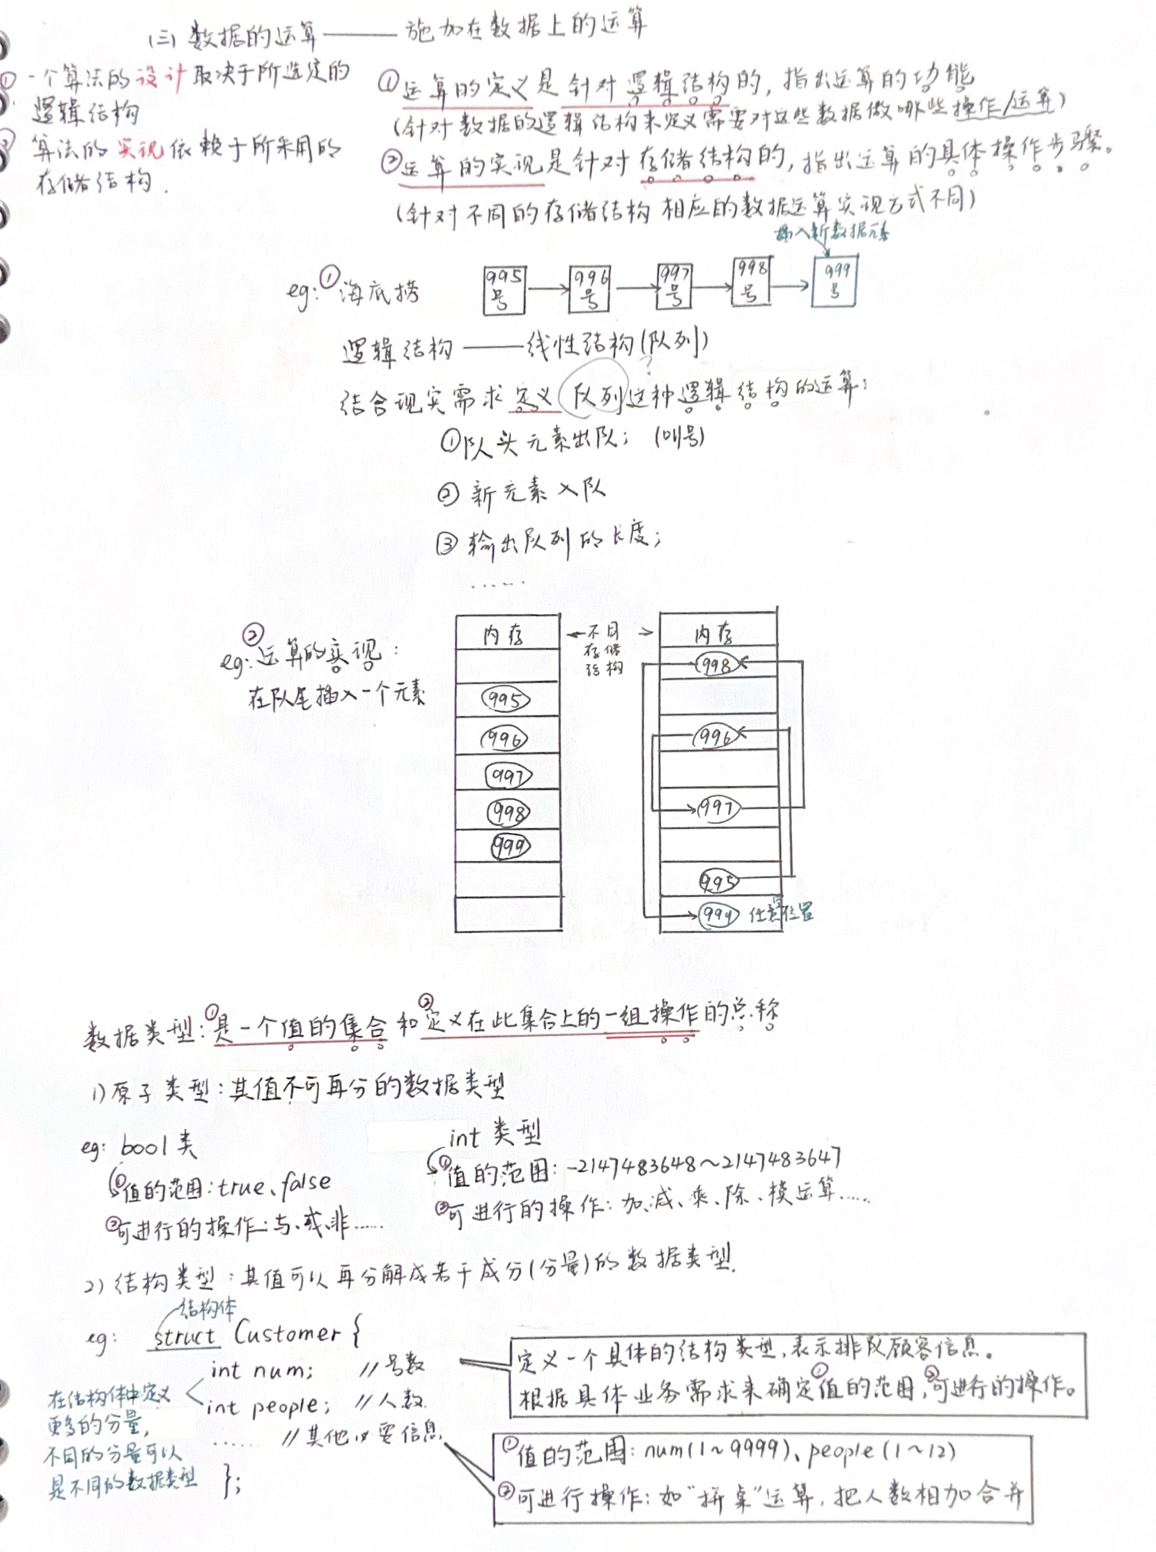 (三) 数据的运算——施加在数据上的运算
① 一个算法的设计取决于所选定的
逻辑结构
② 算法的实现依赖于所采用的
存储结构.
①运算的定义是针对逻辑结构的,指出运算的功能
(针对数据的逻辑结构来定义需要对这些数据做哪些操作/运算)
②运算的实现是针对存储结构的,指出运算的具体操作步骤。
(针对不同的存储结构 相应的数据运算实现方式不同)
插入新数据元素
eg:①海底捞
995号
996号
997号
998号
999号
逻辑结构——线性结构(队列)
?
结合现实需求定义队列这种逻辑结构的运算:
①队头元素出队; (叫号)
②新元素入队
③输出队列的长度;
......
eg:②运算的实现:
在队尾插入一个元素
内存
995
996
997
998
999
不同
存储
结构
内存
998
996
997
995
999 任意位置
数据类型:①是一个值的集合和②定义在此集合上的一组操作的总称
1)原子类型:其值不可再分的数据类型
eg: bool类
①值的范围:true、false
②可进行的操作:与、或、非......
int 类型
①值的范围:-2147483648～2147483647
②可进行的操作:加、减、乘、除、模运算......
2)结构类型:其值可以再分解成若干成分(分量)的数据类型.
结构体
eg: struct Customer {
int num; //号数
int people; //人数
...... //其他必要信息
};
在结构体中定义
更多的分量,
不同的分量可以
是不同的数据类型
定义一个具体的结构类型,表示排队顾客信息。
根据具体业务需求来确定①值的范围,②可进行的操作。
①值的范围:num(1～9999)、people(1～12)
②可进行操作:如"拼桌"运算,把人数相加合并